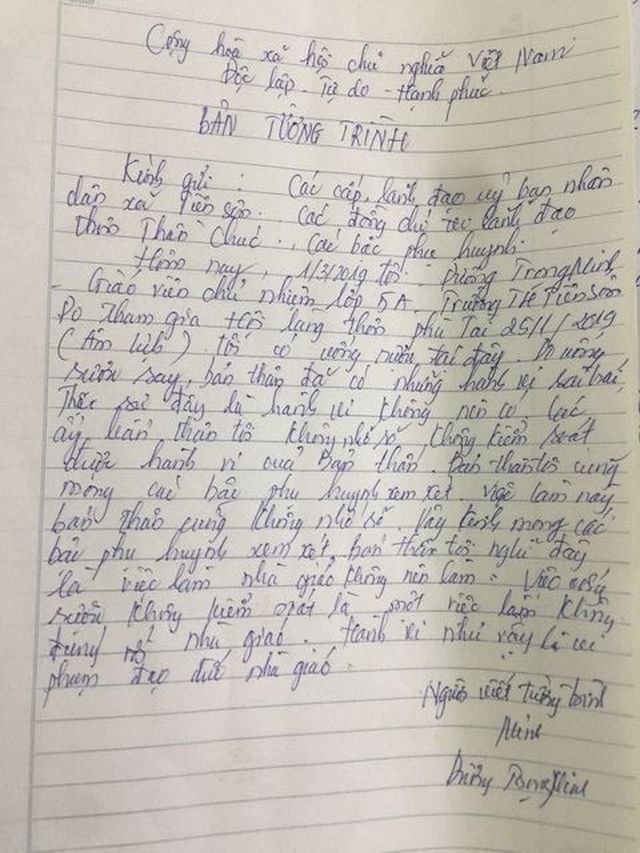 Cộng hoà xã hội chủ nghĩa Việt Nam
Độc lập - Tự do - Hạnh phúc.
BẢN TƯỜNG TRÌNH
Kính gửi: Các cấp lãnh đạo uỷ ban nhân
dân xã Tiên Sơn. Các đồng chí lãnh đạo
thôn Thần Chúc., Các bác phụ huynh.
Hôm nay, 1/3/2019 tôi: Dương Trọng Minh
- Giáo viên chủ nhiệm lớp 5A. Trường TH Tiên Sơn
Do tham gia Hội làng thôn phù Tai 25/1/2019
(Âm lịch) tôi có uống rượu tại đây. Do uống
rượu say, bản thân đã có những hành vi sai trái,
Thực sự đây là hành vi không nên có, lúc
ấy bản thân tôi không nhớ số, không kiểm soát
được hành vi của Bản thân. Bản thân tôi cũng
mong các bác phụ huynh xem xét. Việc làm này
bản thân cũng không nhớ số. Vậy kính mong các
bác phụ huynh xem xét, bản thân tôi nghĩ đây
là việc làm nhà giáo không nên làm. Việc uống
rượu không kiểm soát là một việc làm không
đúng nhà giáo. Hành vi như vậy là vi
phạm đạo đức nhà giáo.
Người viết tường trình
Minh
Dương Trọng Minh